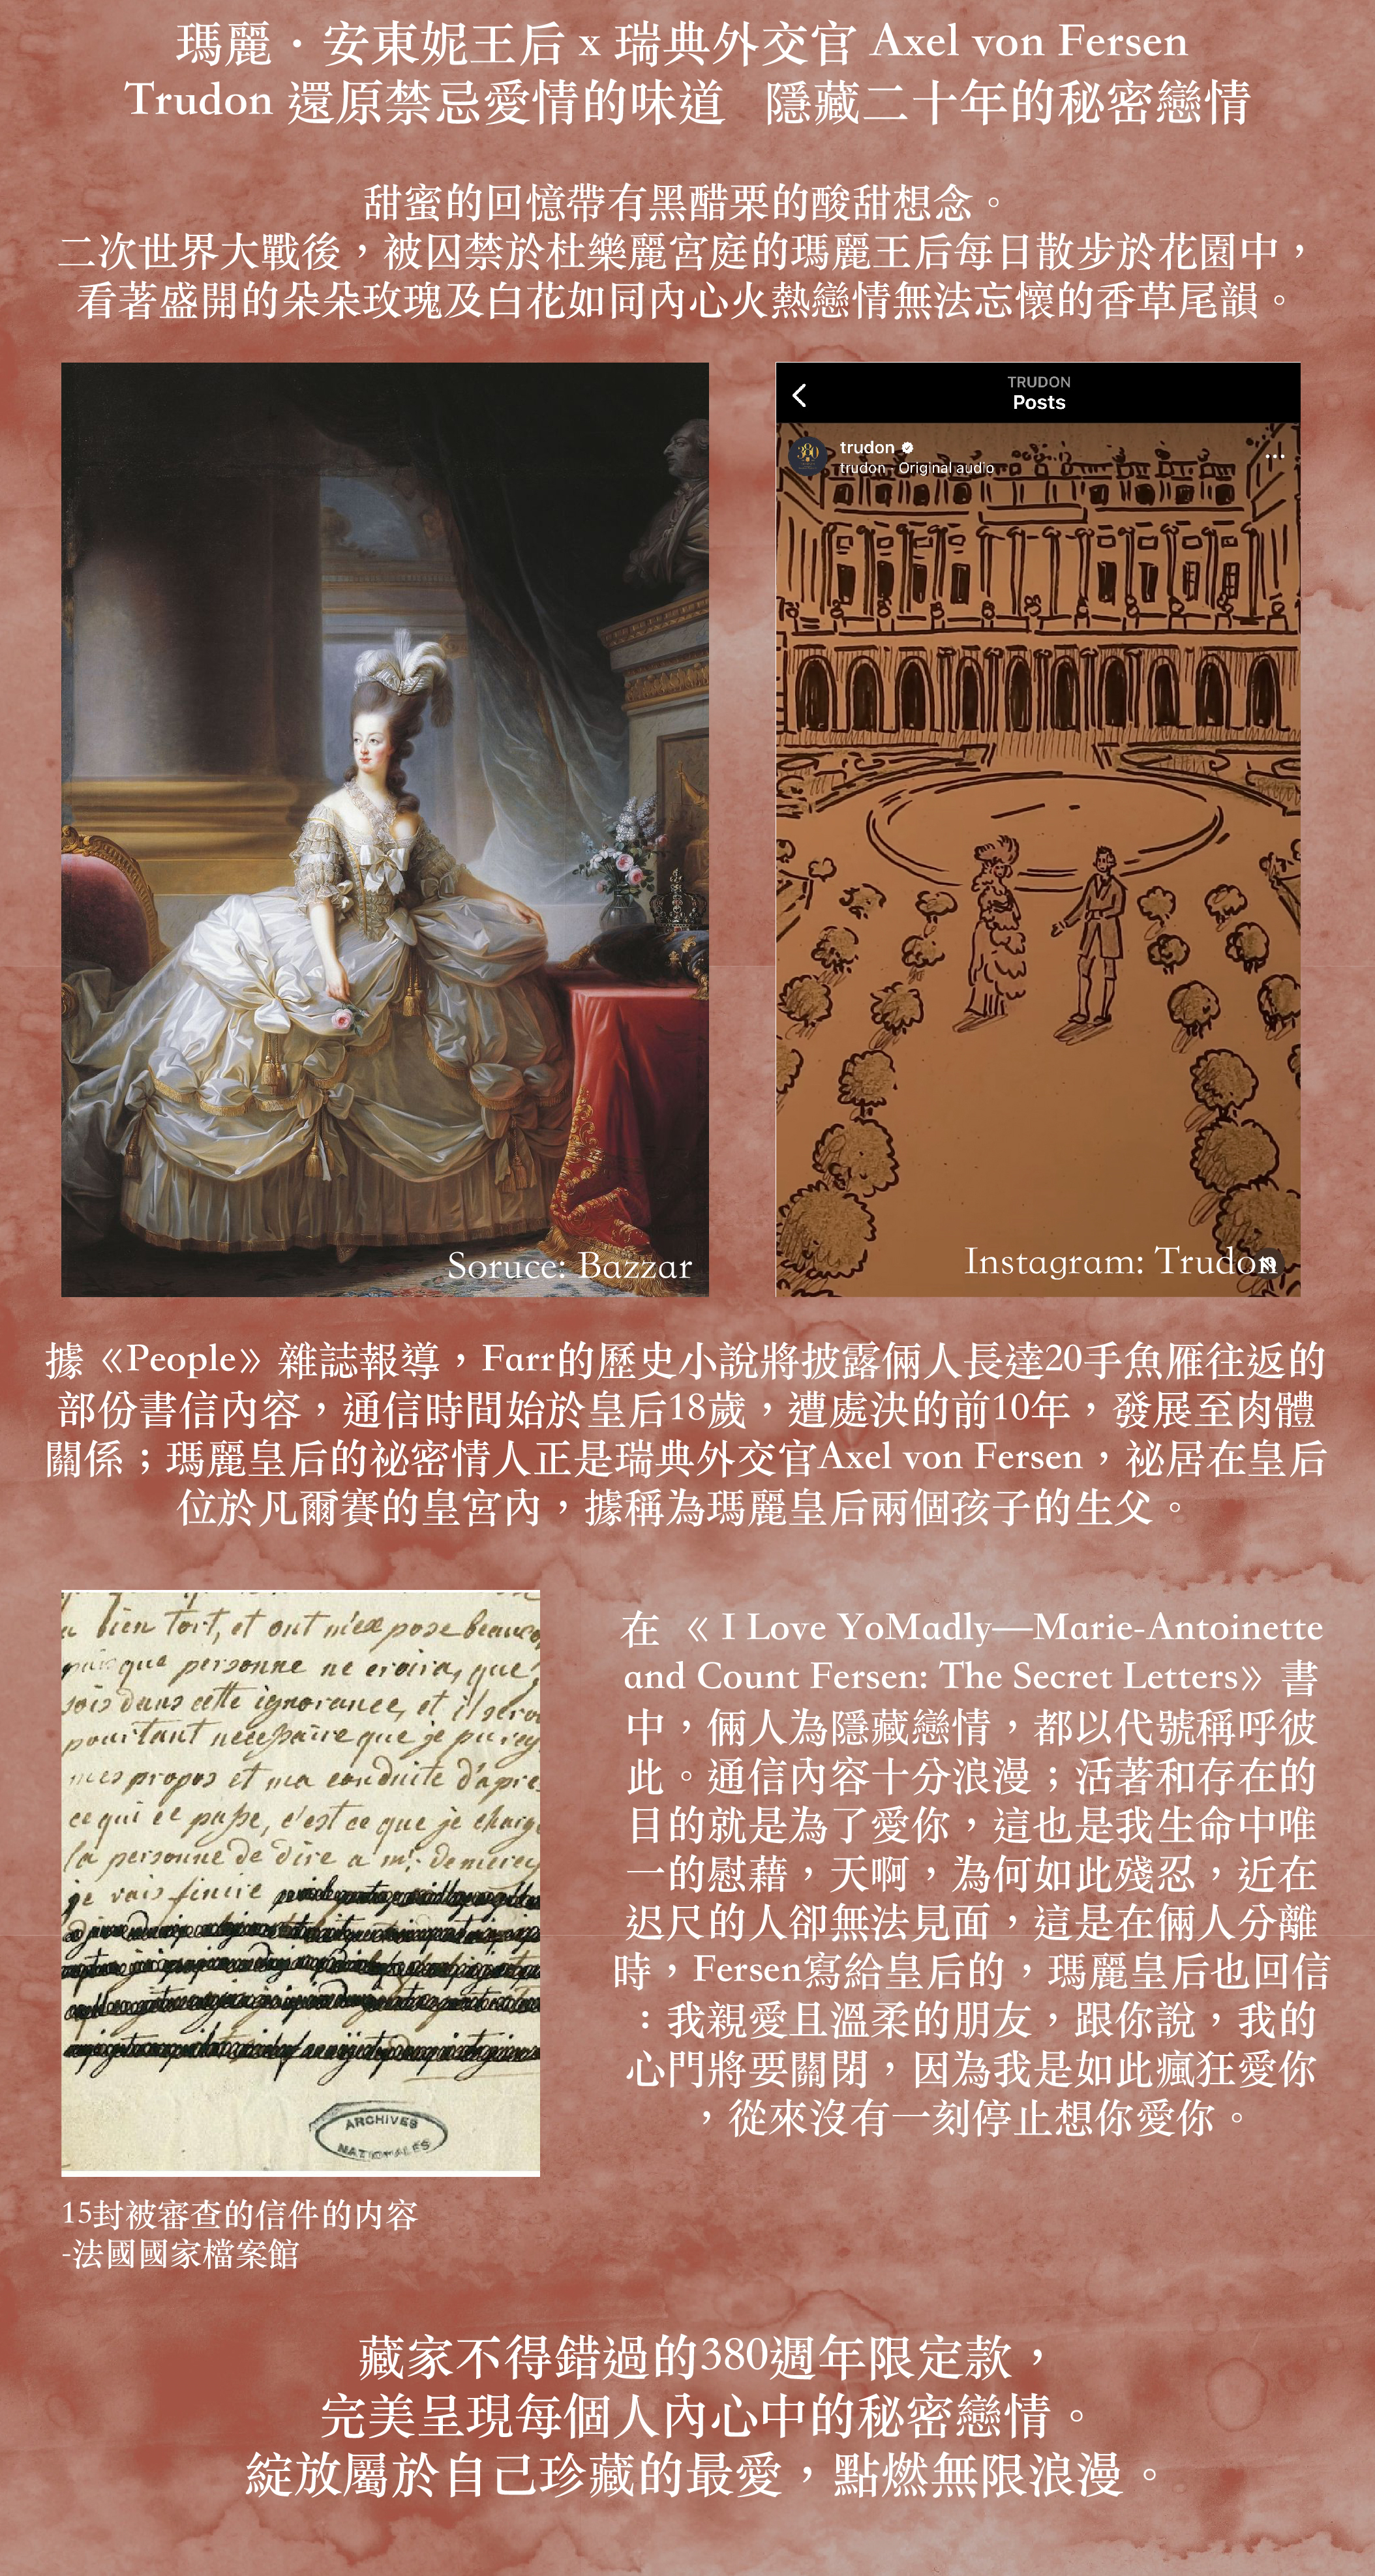 瑪麗·安東妮王后 x 瑞典外交官 Axel von Fersen
Trudon 還原禁忌愛情的味道 隱藏二十年的秘密戀情
甜蜜的回憶帶有黑醋栗的酸甜想念。
二次世界大戰後，被囚禁於杜樂麗宮庭的瑪麗王后每日散步於花園中，
看著盛開的朵朵玫瑰及白花如同內心火熱戀情無法忘懷的香草尾韻。
TRUDON
Posts
380
trudon
trudon · Original audio
Soruce: Bazzar
Instagram: Trudon
據《People》雜誌報導，Farr的歷史小說將披露倆人長達20手魚雁往返的
部份書信內容，通信時間始於皇后18歲，遭處決的前10年，發展至肉體
關係；瑪麗皇后的祕密情人正是瑞典外交官Axel von Fersen，祕居在皇后
位於凡爾賽的皇宮內，據稱為瑪麗皇后兩個孩子的生父。
bien tort, et ont m'ex pose beauco
que personne ne croira, que
sois dans cette ignorance, et il sero
pourtant necessaire que je pu
mes propos et ma conduite d'apre
ce qui ce passe, c'est ce que je charge
la personne de dire a mr. de mercy
je vais finire
ARCHIVES
NATIONALES
15封被審查的信件的內容
-法國國家檔案館
在 《 I Love YoMadly—Marie-Antoinette
and Count Fersen: The Secret Letters》書
中，倆人為隱藏戀情，都以代號稱呼彼
此。通信內容十分浪漫；活著和存在的
目的就是為了愛你，這也是我生命中唯
一的慰藉，天啊，為何如此殘忍，近在
迟尺的人卻無法見面，這是在倆人分離
時，Fersen寫給皇后的，瑪麗皇后也回信
：我親愛且溫柔的朋友，跟你說，我的
心門將要關閉，因為我是如此瘋狂愛你
，從來沒有一刻停止想你愛你。
藏家不得錯過的380週年限定款，
完美呈現每個人內心中的秘密戀情。
綻放屬於自己珍藏的最愛，點燃無限浪漫。